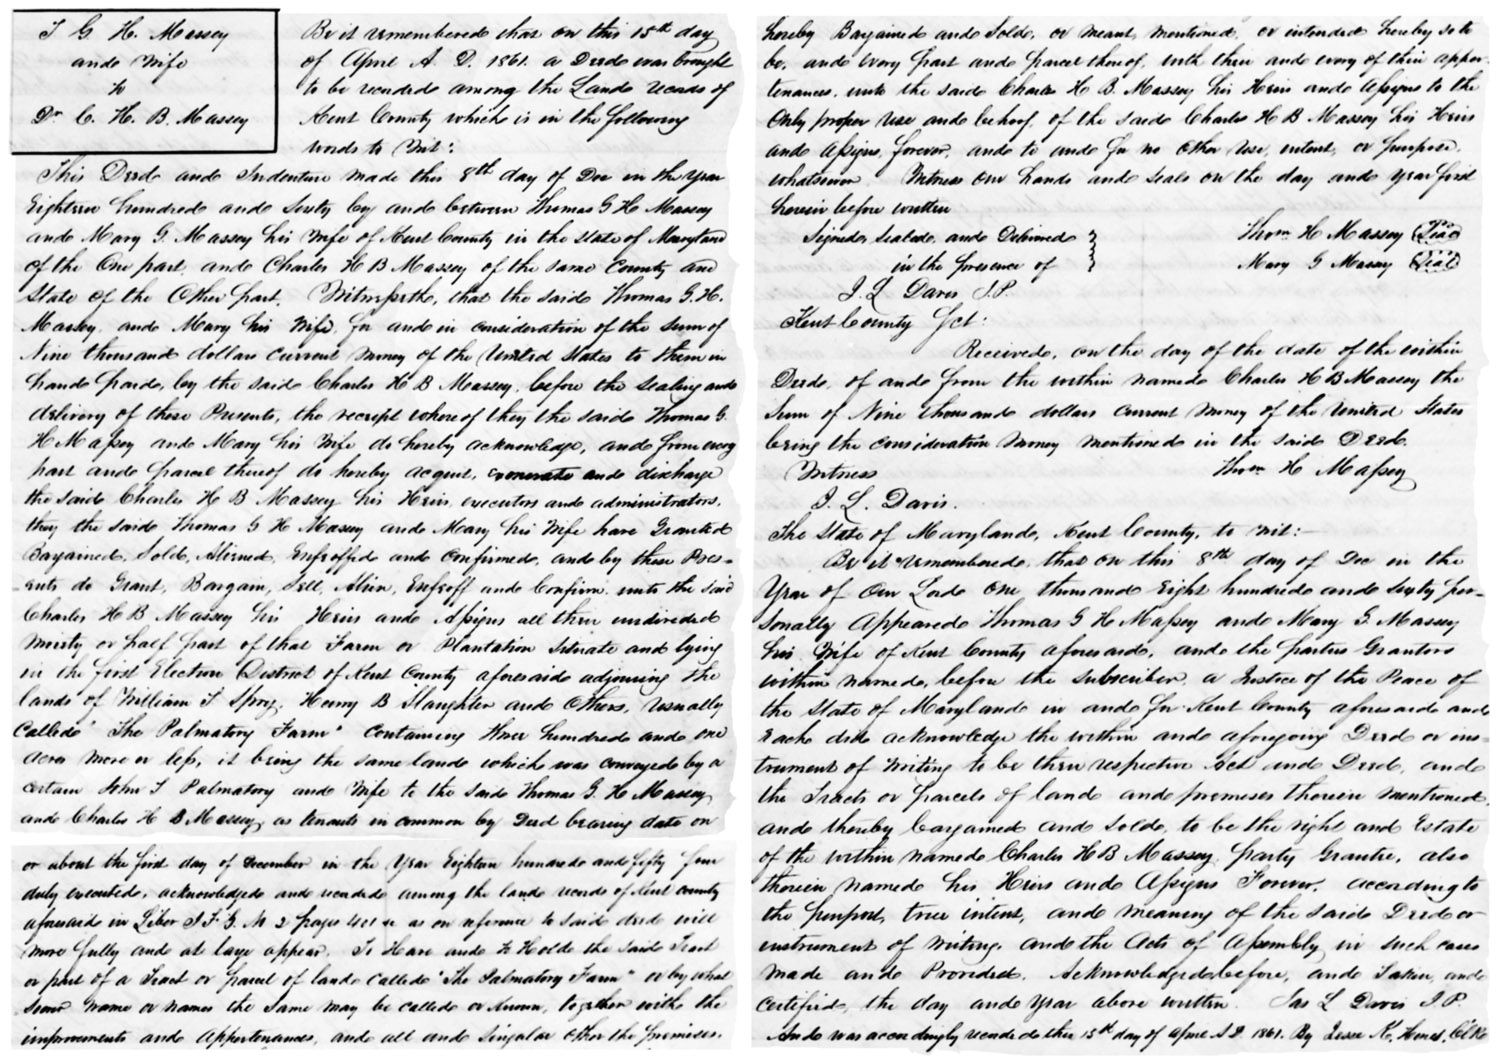 T G H. Massey
and Wife
to
Dr. C. H. B. Massey
Be it remembered that on this 15th day
of April A. D. 1861. a Deed was brought
to be recorded among the Land records of
Kent County which is in the following
words to Wit:
This Deed and Indenture made this 8th day of Dec in the Year
Eighteen hundred and Sixty by and between Thomas G H Massey
and Mary G. Massey his Wife of Kent County in the State of Maryland
of the One part, and Charles H B Massey of the same County and
State of the Other part, Witnesseth, that the said Thomas G. H.
Massey, and Mary his Wife, for and in consideration of the Sum of
Nine thousand dollars current money of the United States to them in
hand paid, by the said Charles H B Massey, before the Sealing and
delivery of these Presents, the receipt whereof they the said Thomas G.
H Massey and Mary his Wife do hereby acknowledge, and from every
part and parcel thereof do hereby acquit, exonerate and discharge
the said Charles H B Massey his Heirs, executors and administrators,
they the said Thomas G H Massey and Mary his Wife have Granted
Bargained, Sold, Aliened, Enfeoffed and Confirmed, and by these Pres-
ents do Grant, Bargain, Sell, Alien, Enfeoff and Confirm unto the said
Charles H B Massey his Heirs and Assigns all their undivided
Moiety or half part of that Farm or Plantation Situate and lying
in the first Election District of Kent County aforesaid adjoining the
lands of William T Spry, Henry B Slaughter and Others, Usually
Called "The Palmatory Farm" Containing three hundred and one
Acres more or less, it being the same land which was conveyed by a
certain John T Palmatory and Wife to the said Thomas G. H Massey
and Charles H B Massey, as tenants in common by Deed bearing date on
or about the first day of December in the Year Eighteen hundred and fifty four
duly executed, acknowledged and recorded among the land records of Kent County
aforesaid in Liber J. F. G. No 2 pages as on reference to said deed will
more fully and at large appear. To Have and to Hold the said Tract
or part of a Tract or parcel of land called "The Palmatory Farm" or by what
Soever name or names the same may be called or known, together with the
improvements and appurtenances, and all and singular other the premises,
hereby Bargained and Sold, or meant, mentioned, or intended hereby so to
be, and every part and parcel thereof, with their and every of their appur-
tenances, unto the said Charles H B. Massey his Heirs and Assigns to the
Only proper Use and behoof, of the said Charles H B Massey his Heirs
and Assigns, forever, and to and for no Other Use, intent, or purpose,
whatsoever. Witness our hands and seals on the day and year first
herein before written
Signed, Sealed, and Delivered
in the presence of
Thos. H Massey Seal
Mary G Massey Seal
J. L Davis J. P.
Kent County Sct:
Received, on the day of the date of the within
Deed, of and from the within named Charles H B Massey the
Sum of Nine thousand dollars current money of the United States
being the consideration money mentioned in the said Deed.
Witness
Thos. H Massey
J. L. Davis.
The State of Maryland, Kent County, to wit:-
Be it remembered, that on this 8th day of Dec in the
Year of Our Lord One thousand Eight hundred and Sixty per-
sonally Appeared Thomas G H Massey and Mary G. Massey
his Wife of Kent County aforesaid, and the parties Grantors
within named, before the Subscriber, a Justice of the Peace of
the State of Maryland in and for Kent County aforesaid and
Each did acknowledge the within and aforegoing Deed or ins-
trument of Writing to be their respective Act and Deed, and
the Tracts or parcels of land and premises therein mentioned,
and thereby bargained and Sold, to be the right and Estate
of the within named Charles H B Massey, party Grantee, also
therein named his Heirs and Assigns Forever, according to
the purport, true intent, and meaning of the said Deed or
instrument of writing, and the Acts of Assembly in such cases
made and Provided. Acknowledged before, and Taken, and
Certified, the day and year above written. Jas L Davis J. P.
And was accordingly recorded this 15th day of April A D. 1861. By Jesse K. Hines, Clk